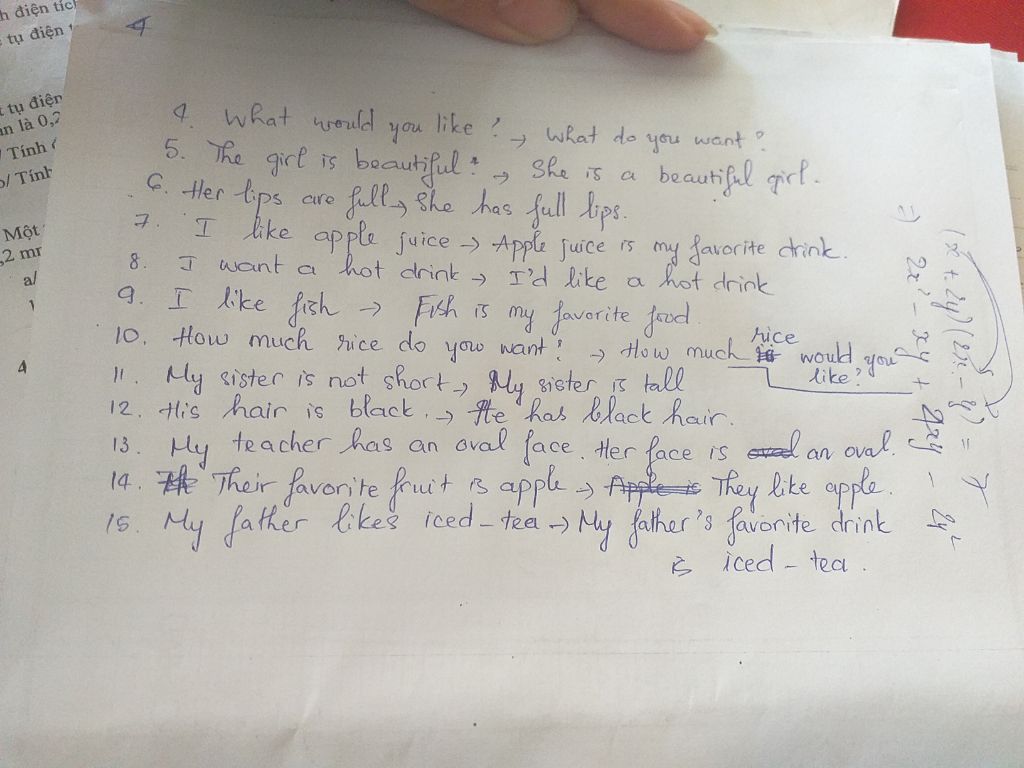 h điện tích
tụ điện
t tụ điện
là 0,2
Tính
b/ Tính
Một
,2 mm
a/
4
4. What would you like? → What do you want?
5. The girl is beautiful. → She is a beautiful girl.
6. Her lips are full → She has full lips.
7. I like apple juice → Apple juice is my favorite drink.
8. I want a hot drink → I'd like a hot drink
9. I like fish → Fish is my favorite food.
10. How much rice do you want? → How much rice would you like?
11. My sister is not short → My sister is tall
12. His hair is black. → He has black hair.
13. My teacher has an oval face. Her face is an oval.
14. Their favorite fruit is apple → They like apple.
15. My father likes iced-tea → My father's favorite drink
is iced-tea.
(x + 2y)(2x - y) = 7
2x² - xy + 4xy - 2y²